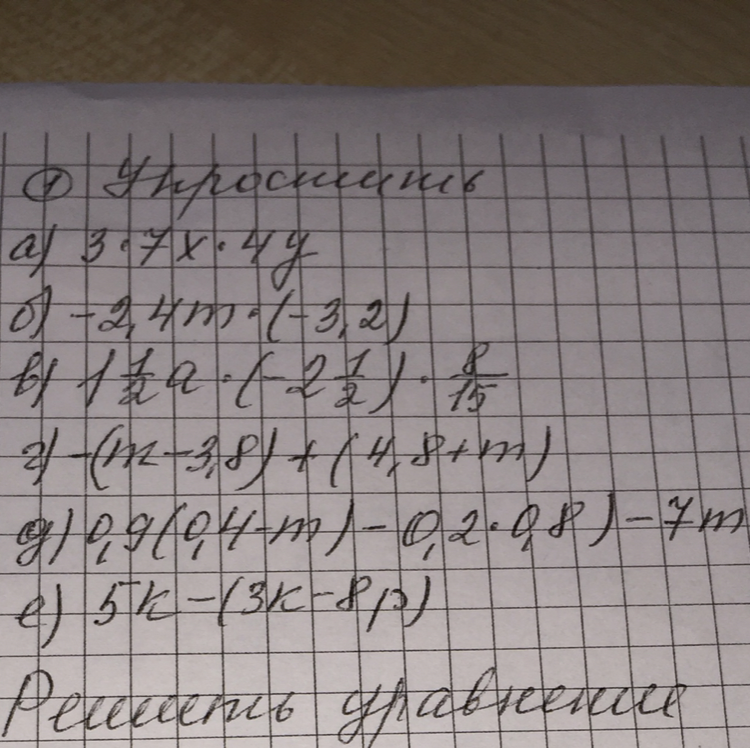 ① Упростить
а) 3·7x·4y
б) -2,4m·(-3,2)
в) 1 1/2 a·(-2 1/2)· 8/15
г) -(m-3,8)+(4,8+m)
д) 0,9(0,4-m)-0,2·0,8)-7m
е) 5k-(3k-8p)
Решить уравнение